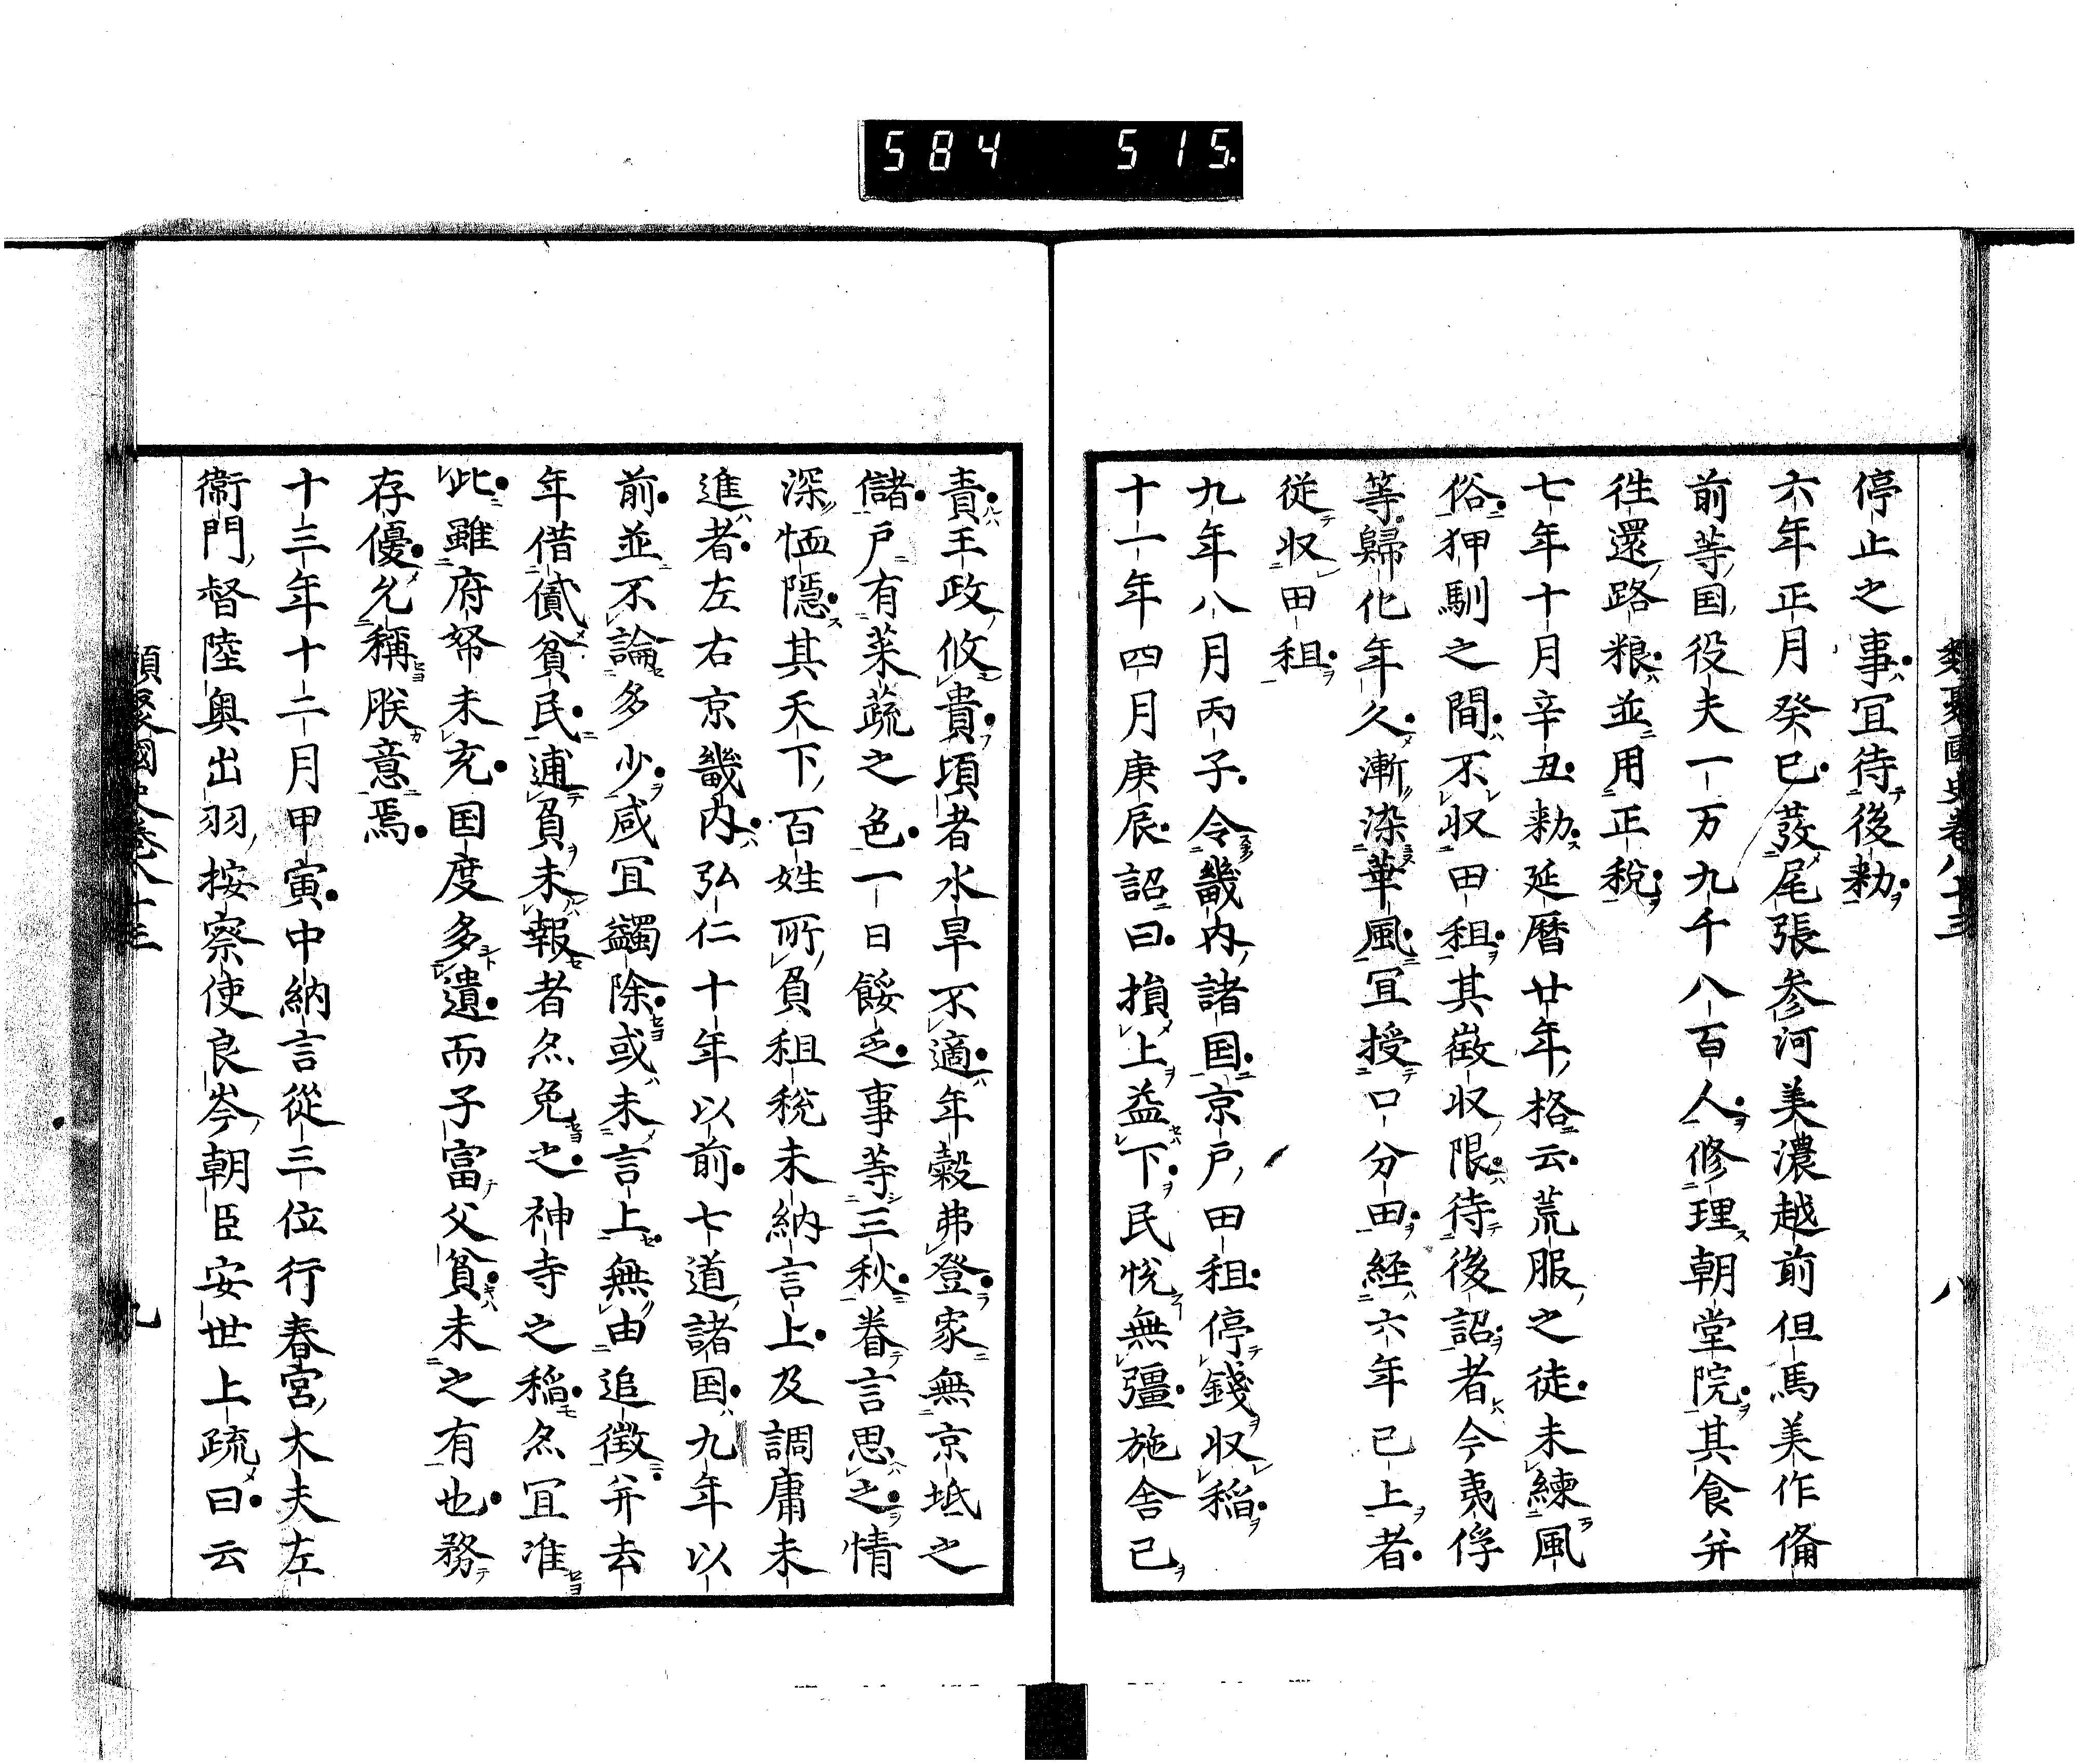 584 515
類聚國史卷八十三 八
停止之事宜待後勅
六年正月癸巳發尾張参河美濃越前但馬美作備
前等国役夫一万九千八百人修理朝堂院其食并
徃還路粮並用正稅
七年十月辛丑勅延曆廿年格云荒服之徒未練風
俗狎馴之間不収田租其徵収限待後詔者今夷俘
等歸化年久漸染華風宜授口分田経六年已上者
従収田租
九年八月丙子令畿内諸国京戶田租停錢収稲
十一年四月庚辰詔曰損上益下民悅無彊施舎已
責王政攸貴頃者水旱不適年穀弗登家無京坻之
儲戶有菜蔬之色一日餒乏事等三秋眷言思之情
深恤隱其天下百姓所負租稅未納言上及調庸未
進者左右京畿内弘仁十年以前七道諸国九年以
前並不論多少咸宜蠲除或未言上無由追徵并去
年借貸貧民逋負未報者亦免之神寺之稲亦宜准
此雖府帑未充国度多遺而子富父貧未之有也務
存優允稱朕意焉
十三年十二月甲寅中納言從三位行春宮大夫左
衞門督陸奥出羽按察使良岑朝臣安世上疏曰云
類聚國史卷八十三 九